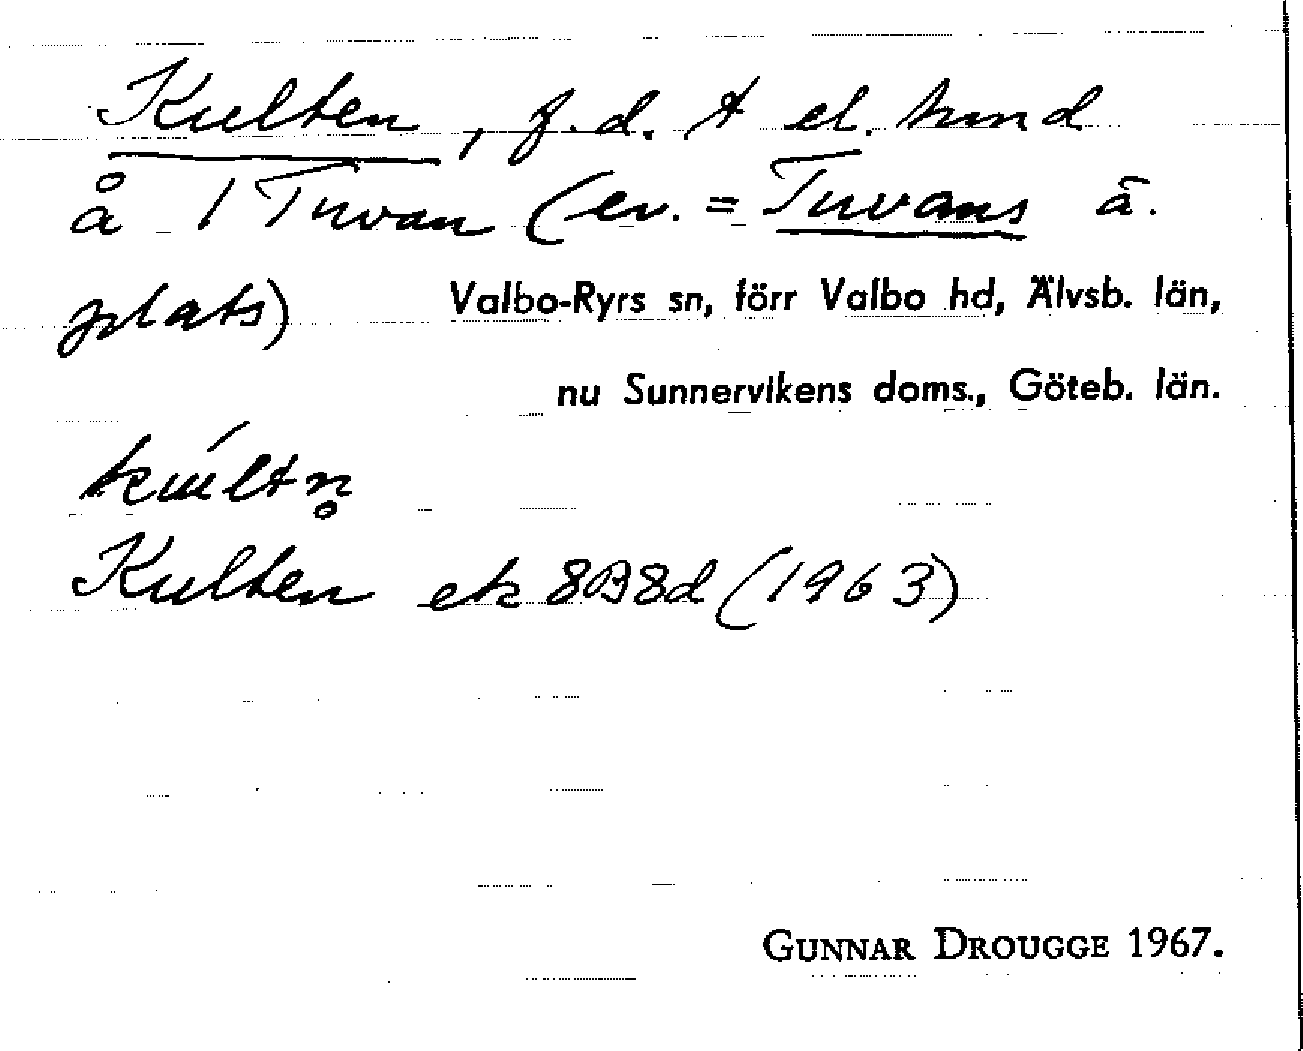 Kulten, f.d. t el. hmd
å 1 Tuvan (ev. = Tuvans å.
plats) Valbo-Ryrs sn, förr Valbo hd, Älvsb. län,
nu Sunnervikens doms., Göteb. län.
kúltn̥
Kulten ek 8B8d (1963)
GUNNAR DROUGGE 1967.